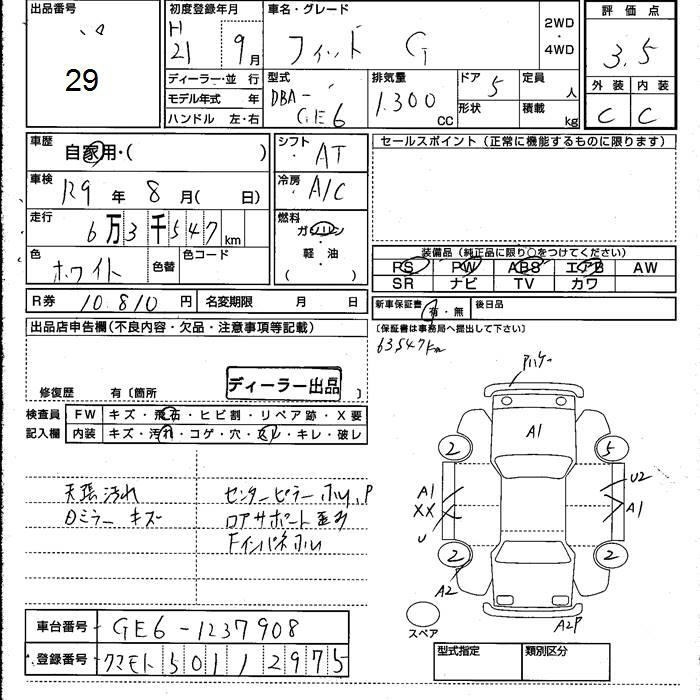 出品番号
29
初度登録年月
H
21 9月
車名・グレード
フィット G
2WD
・
4WD
評価点
3.5
外装 内装
C C
ディーラー・並 行
モデル年式 年
ハンドル 左・右
型式
DBA-
GE6
排気量
1.300
cc
ドア
5
形状
定員
人
積載
kg
車歴
自家用・( )
シフト
AT
セールスポイント(正常に機能するものに限ります)
車検
R9 年 8 月( 日)
冷房
A/C
走行
6万3千547
km
燃料
ガソリン
・
軽・油
( )
色
ホワイト
色替
色コード
装備品(純正品に限り○をつけてください)
PS PW ABS エアB AW
SR ナビ TV カワ
R券 10.810 円 名変期限 月 日
新車保証書
有・無
後日品
(保証書は事務局へ提出して下さい)
63547km
出品店申告欄(不良内容・欠品・注意事項等記載)
修復歴 有〔箇所 〕
ディーラー出品
検査員
記入欄
FW キズ・飛石・ヒビ割・リペア跡・X要
内装 キズ・汚れ・コゲ・穴・スレ・キレ・破レ
天張汚れ
Dミラー キズ
センターピラー ホル,P
ロアサポート歪み
Fインパネホル
A1
2
5
A1
XX
U
U2
A1
2
2
A2
A2P
スペア
型式指定 類別区分
車台番号 GE6-1237908
登録番号 クマモト 501 1 2975